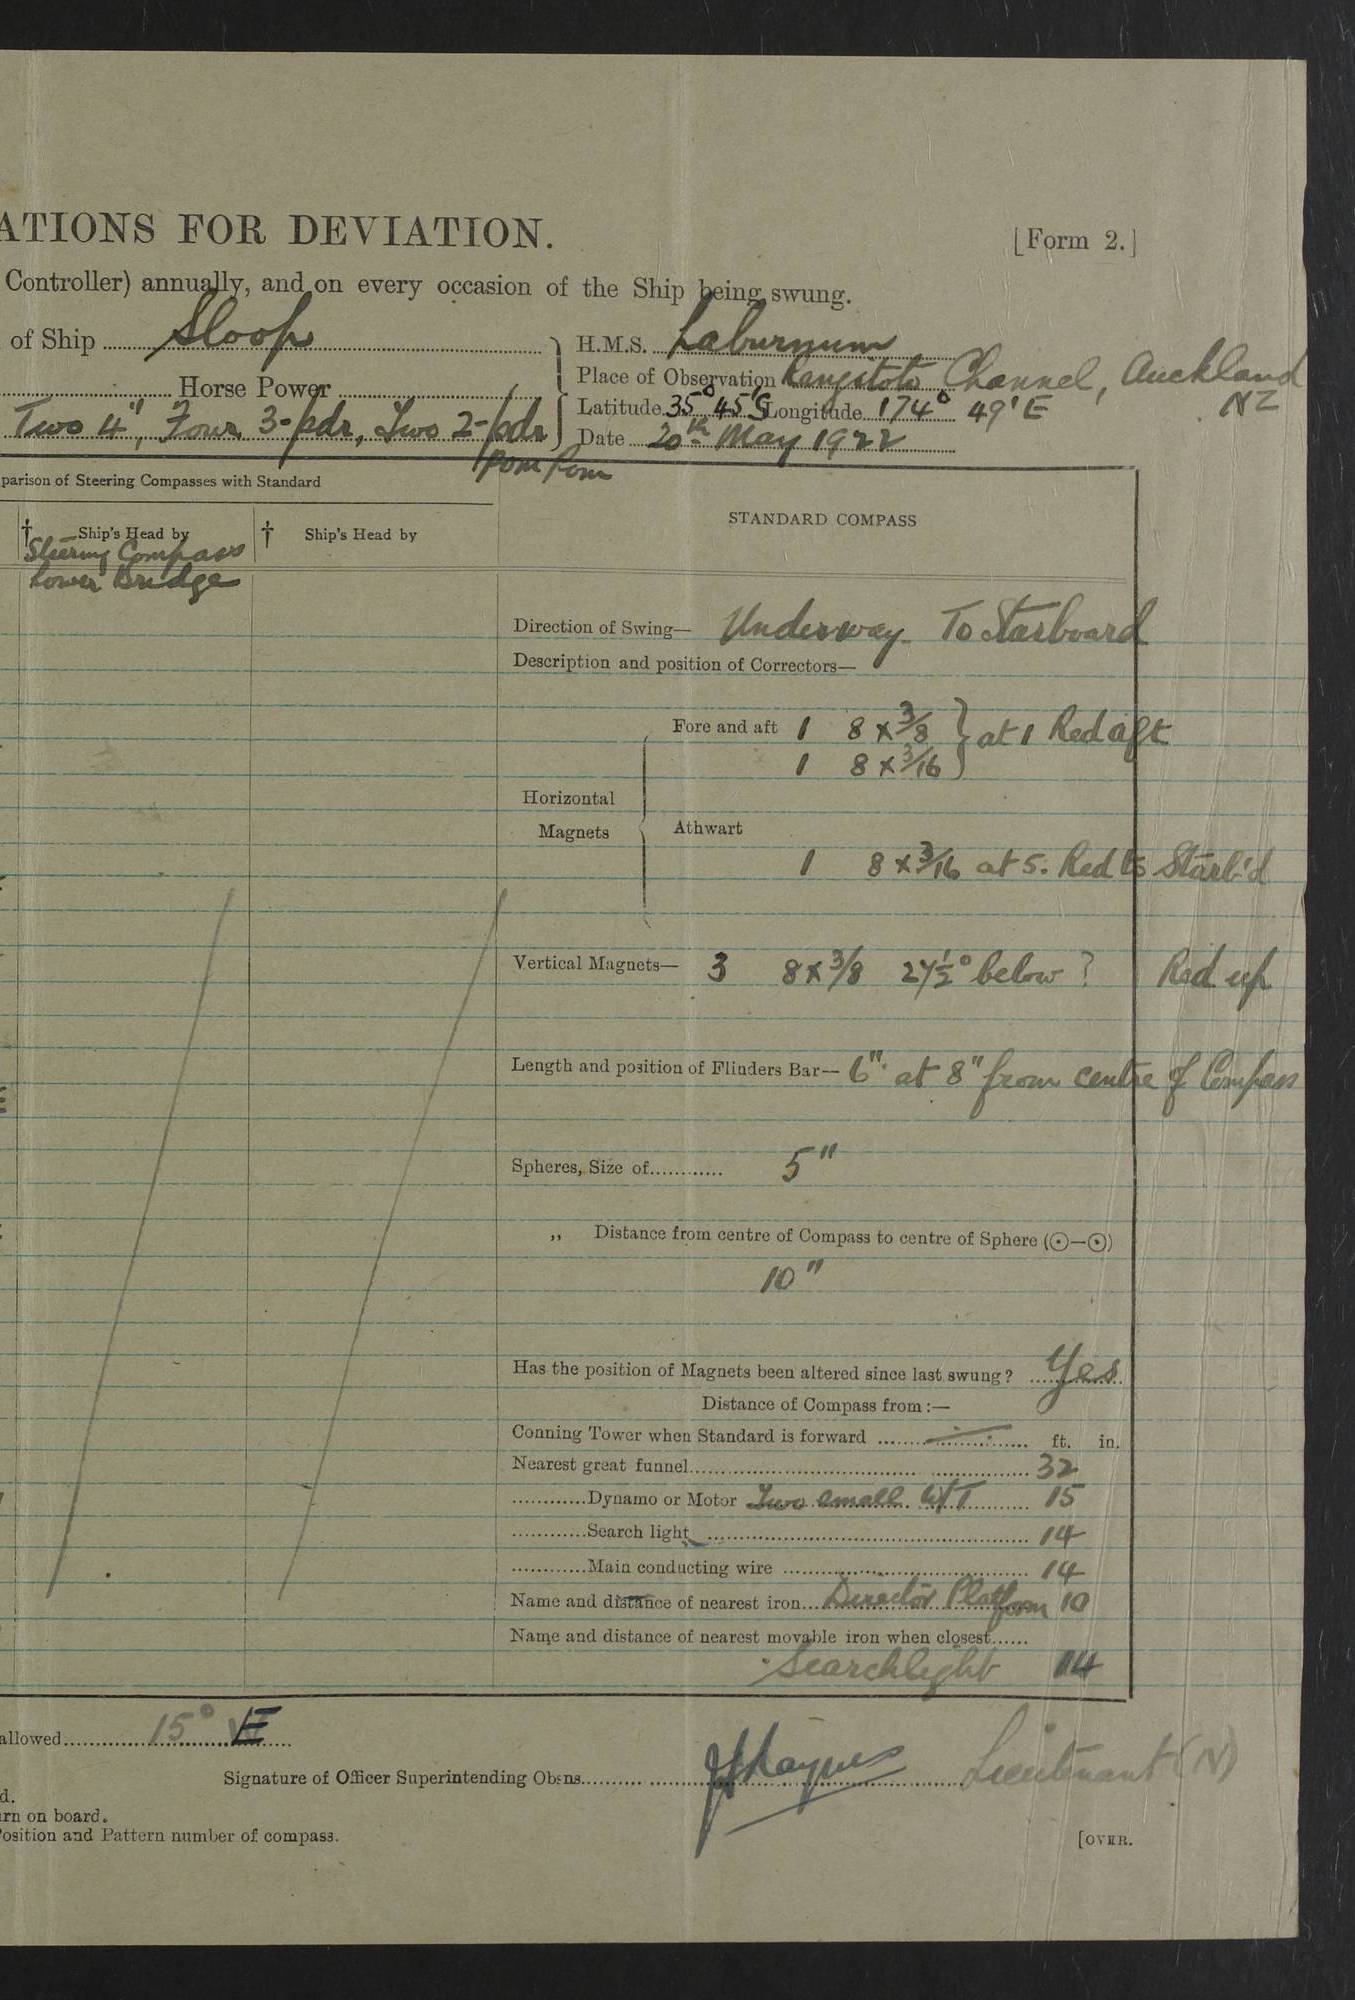 ATIONS FOR DEVIATION.
[Form 2.]
Controller) annually, and on every occasion of the Ship being swung.
of Ship Sloop
H.M.S. Laburnum
Horse Power
Place of Observation Rangitoto Channel, Auckland NZ
Two 4", Four 3-pdr, Two 2-pdr
pom pom
Latitude 35° 45'S Longitude 174° 49'E
Date 20th May 1922
parison of Steering Compasses with Standard
† Ship's Head by
Steering Compass
Lower Bridge
† Ship's Head by
STANDARD COMPASS
Direction of Swing— Underway. To Starboard
Description and position of Correctors—
Fore and aft 1 8 x 3/8 } at 1 Red aft
1 8 x 3/16
Horizontal
Magnets
Athwart
1 8 x 3/16 at 5. Red to Starb'd
Vertical Magnets— 3 8 x 3/8 27½° below ? Red up
Length and position of Flinders Bar— 6" at 8" from centre of Compass
Spheres, Size of............ 5"
,, Distance from centre of Compass to centre of Sphere (⊙—⊙)
10"
Has the position of Magnets been altered since last swung? Yes
Distance of Compass from :—
Conning Tower when Standard is forward ft. in.
Nearest great funnel 32
Dynamo or Motor Two small W/T 15
Search light 14
Main conducting wire 14
Name and distance of nearest iron Director Platform 10
Name and distance of nearest movable iron when closest......
Searchlight 14
allowed 15° E
Signature of Officer Superintending Obsns. Lieutenant (N)
d.
urn on board.
Position and Pattern number of compass.
[OVER.